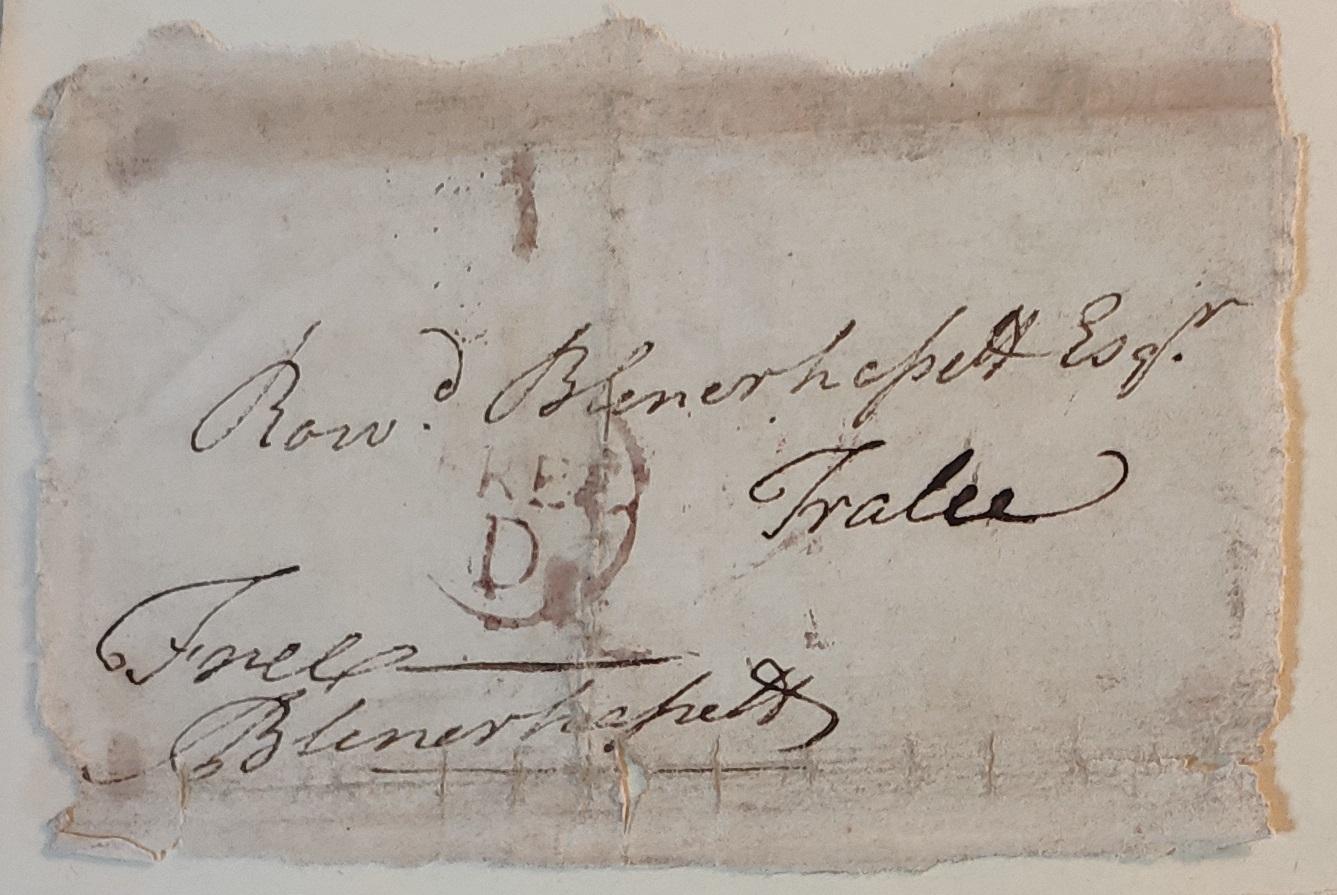 Row.d Blenerhaſsett Esqr.
Tralee
REC
D
Free
Blenerhaſsett